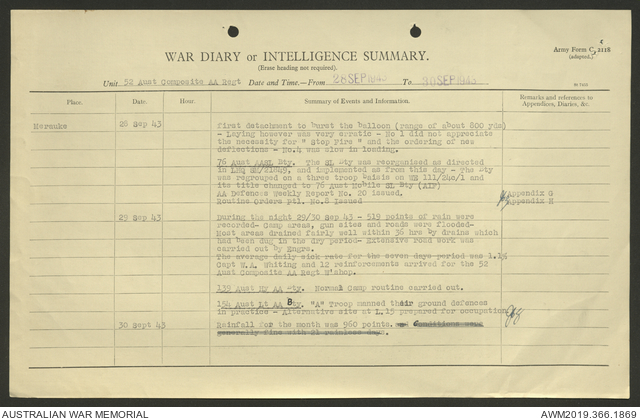 Army Form C. 2118
(adapted.)
WAR DIARY or INTELLIGENCE SUMMARY.
(Erase heading not required).
Unit 52 Aust Composite AA Regt Date and Time.—From 28 SEP 1943 To 30 SEP 1943
Place. Date. Hour. Summary of Events and Information. Remarks and references to Appendices, Diaries, &c.
Merauke 28 Sep 43 first detachment to burst the balloon (range of about 800 yds)
- Laying however was very erratic - No 1 did not appreciate
the necessity for " Stop Fire " and the ordering of new
deflections - No.4 was slow in loading.
76 Aust AASL Bty. The SL Bty was reorganised as directed
in LHQ and implemented as from this day - The Bty
was regrouped on a three troop baisis on WE 111/240/1 and
its title changed to 76 Aust Mobile SL Bty (AIF)
AA Defences Weekly Report No. 20 issued. Appendix G
Routine Orders Pt1. No.8 Issued Appendix H
29 Sep 43 During the night 29/30 Sep 43 - 519 points of rain were
recorded- Camp areas, gun sites and roads were flooded-
Most areas drained fairly well within 36 hrs by drains which
had been dug in the dry period- Extensive road work was
carried out by Engrs.
The average daily sick rate for the seven days period was 1.1%
Capt W.A. Whiting and 12 reinforcements arrived for the 52
Aust Composite AA Regt W'shop.
139 Aust Hy AA Bty. Normal Camp routine carried out.
154 Aust Lt AA Bty. "A" Troop manned their ground defences
in practice - Alternative site at L.15 prepared for occupation
30 Sept 43 Rainfall for the month was 960 points. and Conditions were
generally fine with 21 rainless days.
AUSTRALIAN WAR MEMORIAL
AWM2019.366.1869